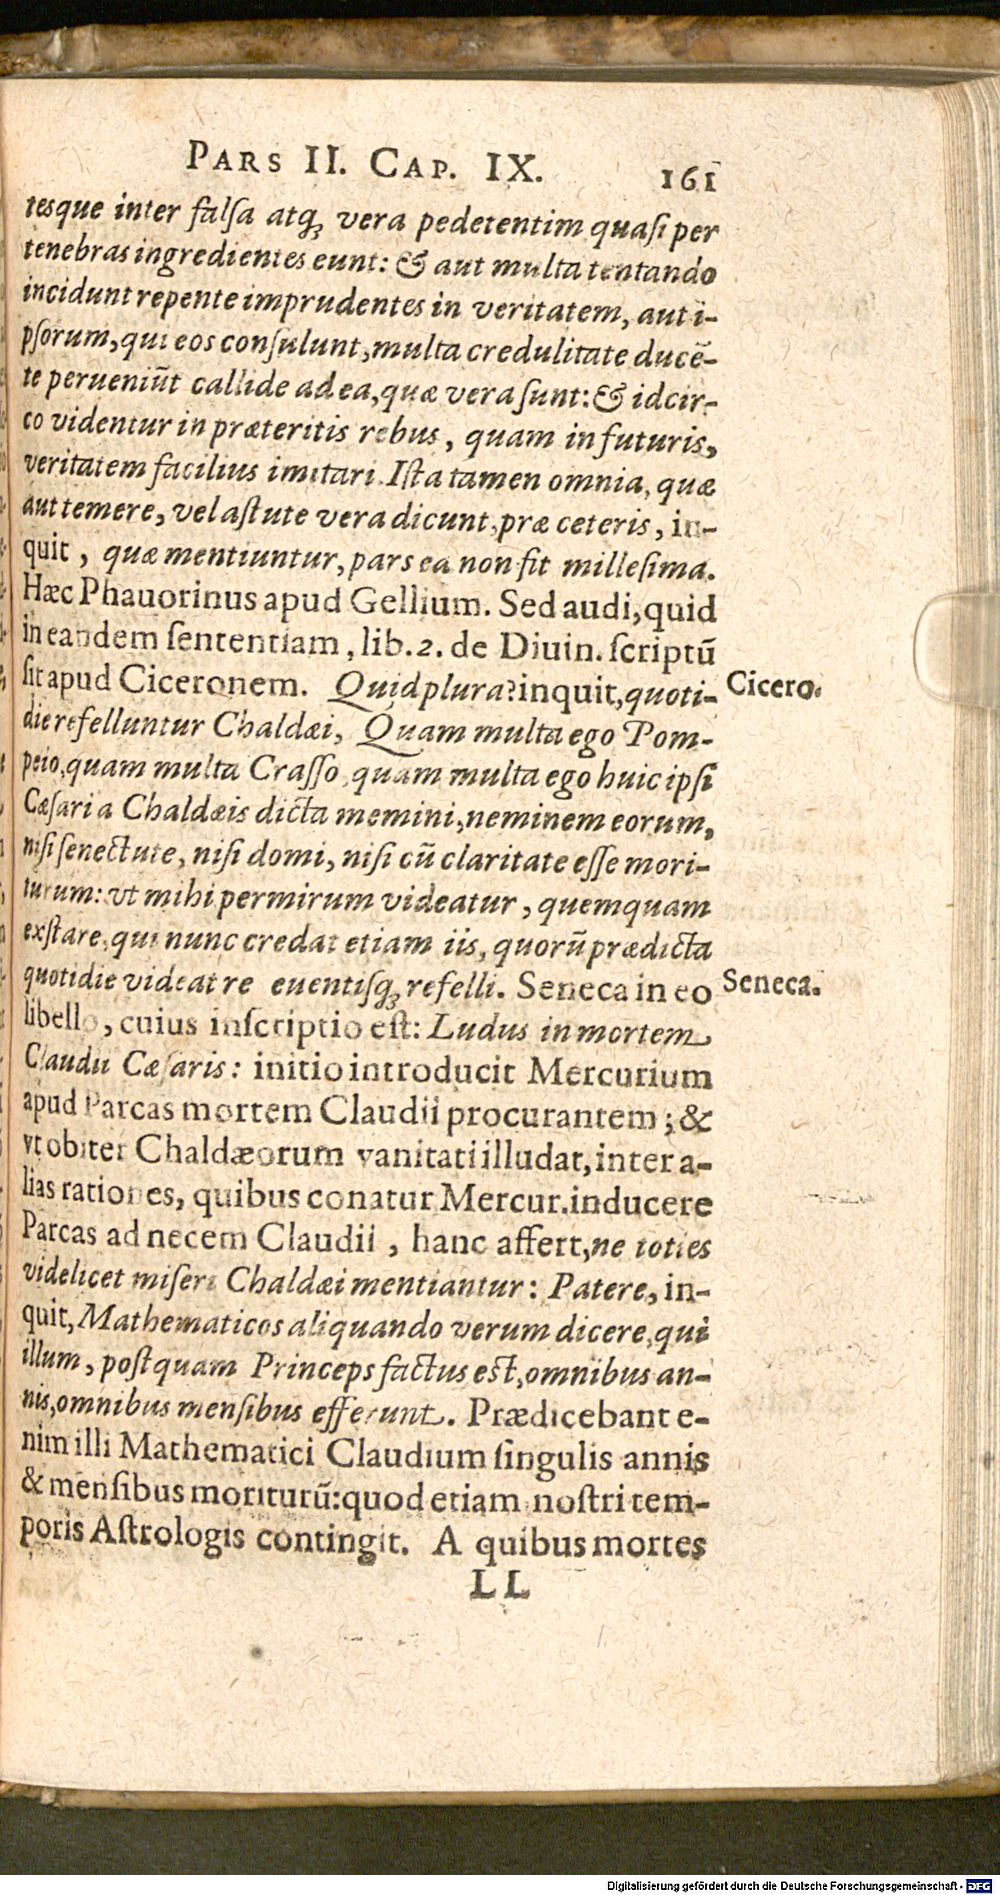 PARS II. CAP. IX. 161
tesque inter falſa atq; vera pedetentim quaſi per
tenebras ingredientes eunt: & aut multa tentando
incidunt repente imprudentes in veritatem, aut i-
pſorum, qui eos conſulunt, multa credulitate ducē-
te perueniūt callide ad ea, quæ vera ſunt: & idcir-
co videntur in præteritis rebus, quam in futuris,
veritatem facilius imitari. Iſta tamen omnia, quæ
aut temere, vel aſtute vera dicunt, præ ceteris, in-
quit, quæ mentiuntur, pars ea non fit milleſima.
Hæc Phauorinus apud Gellium. Sed audi, quid
in eandem ſententiam, lib. 2. de Diuin. ſcriptū
ſit apud Ciceronem. Quid plura? inquit, quoti-
Cicero.
die refelluntur Chaldæi, Quam multa ego Pom-
peio, quam multa Craſſo, quam multa ego huic ipſi
Cæſari a Chaldæis dicta memini, neminem eorum,
niſi ſenectute, niſi domi, niſi cū claritate eſſe mori-
turum: vt mihi permirum videatur, quemquam
exſtare, qui nunc credat etiam iis, quorū prædicta
quotidie videat re euentiſq; refelli. Seneca in eo
Seneca.
libello, cuius inſcriptio eſt: Ludus in mortem
Claudii Cæſaris: initio introducit Mercurium
apud Parcas mortem Claudii procurantem; &
vt obiter Chaldæorum vanitati illudat, inter a-
lias rationes, quibus conatur Mercur. inducere
Parcas ad necem Claudii, hanc affert, ne toties
videlicet miſeri Chaldæi mentiantur: Patere, in-
quit, Mathematicos aliquando verum dicere, qui
illum, poſtquam Princeps factus eſt, omnibus an-
nis, omnibus menſibus efferunt. Prædicebant e-
nim illi Mathematici Claudium ſingulis annis
& menſibus moriturū: quod etiam noſtri tem-
poris Aſtrologis contingit. A quibus mortes
LL
Digitalisierung gefördert durch die Deutsche Forschungsgemeinschaft - DFG